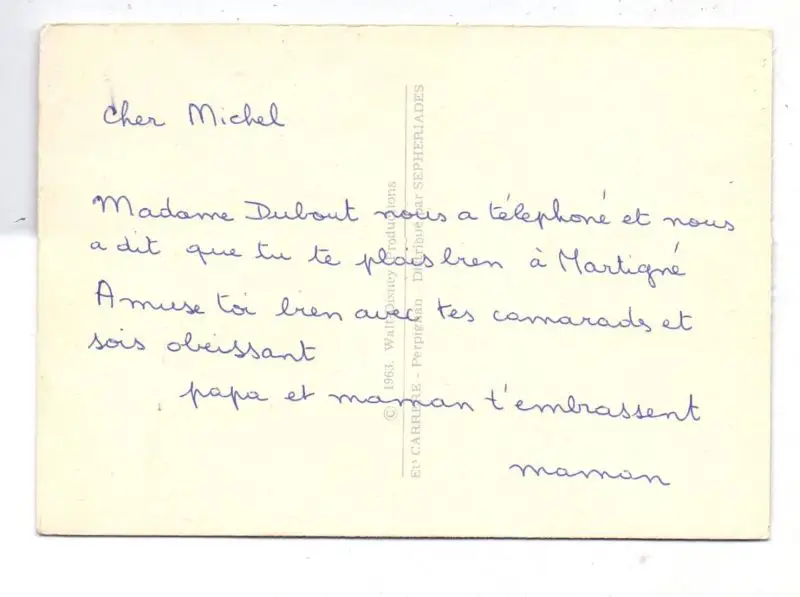 Cher Michel
Madame Dubout nous a téléphoné et nous
a dit que tu te plais bien à Martigné
Amuse toi bien avec tes camarads et
sois obeissant
papa et maman t'embrassent
maman
© 1963. Walt Disney Productions
Ets CARRERE - Perpignan Distribué par SEPHERIADES